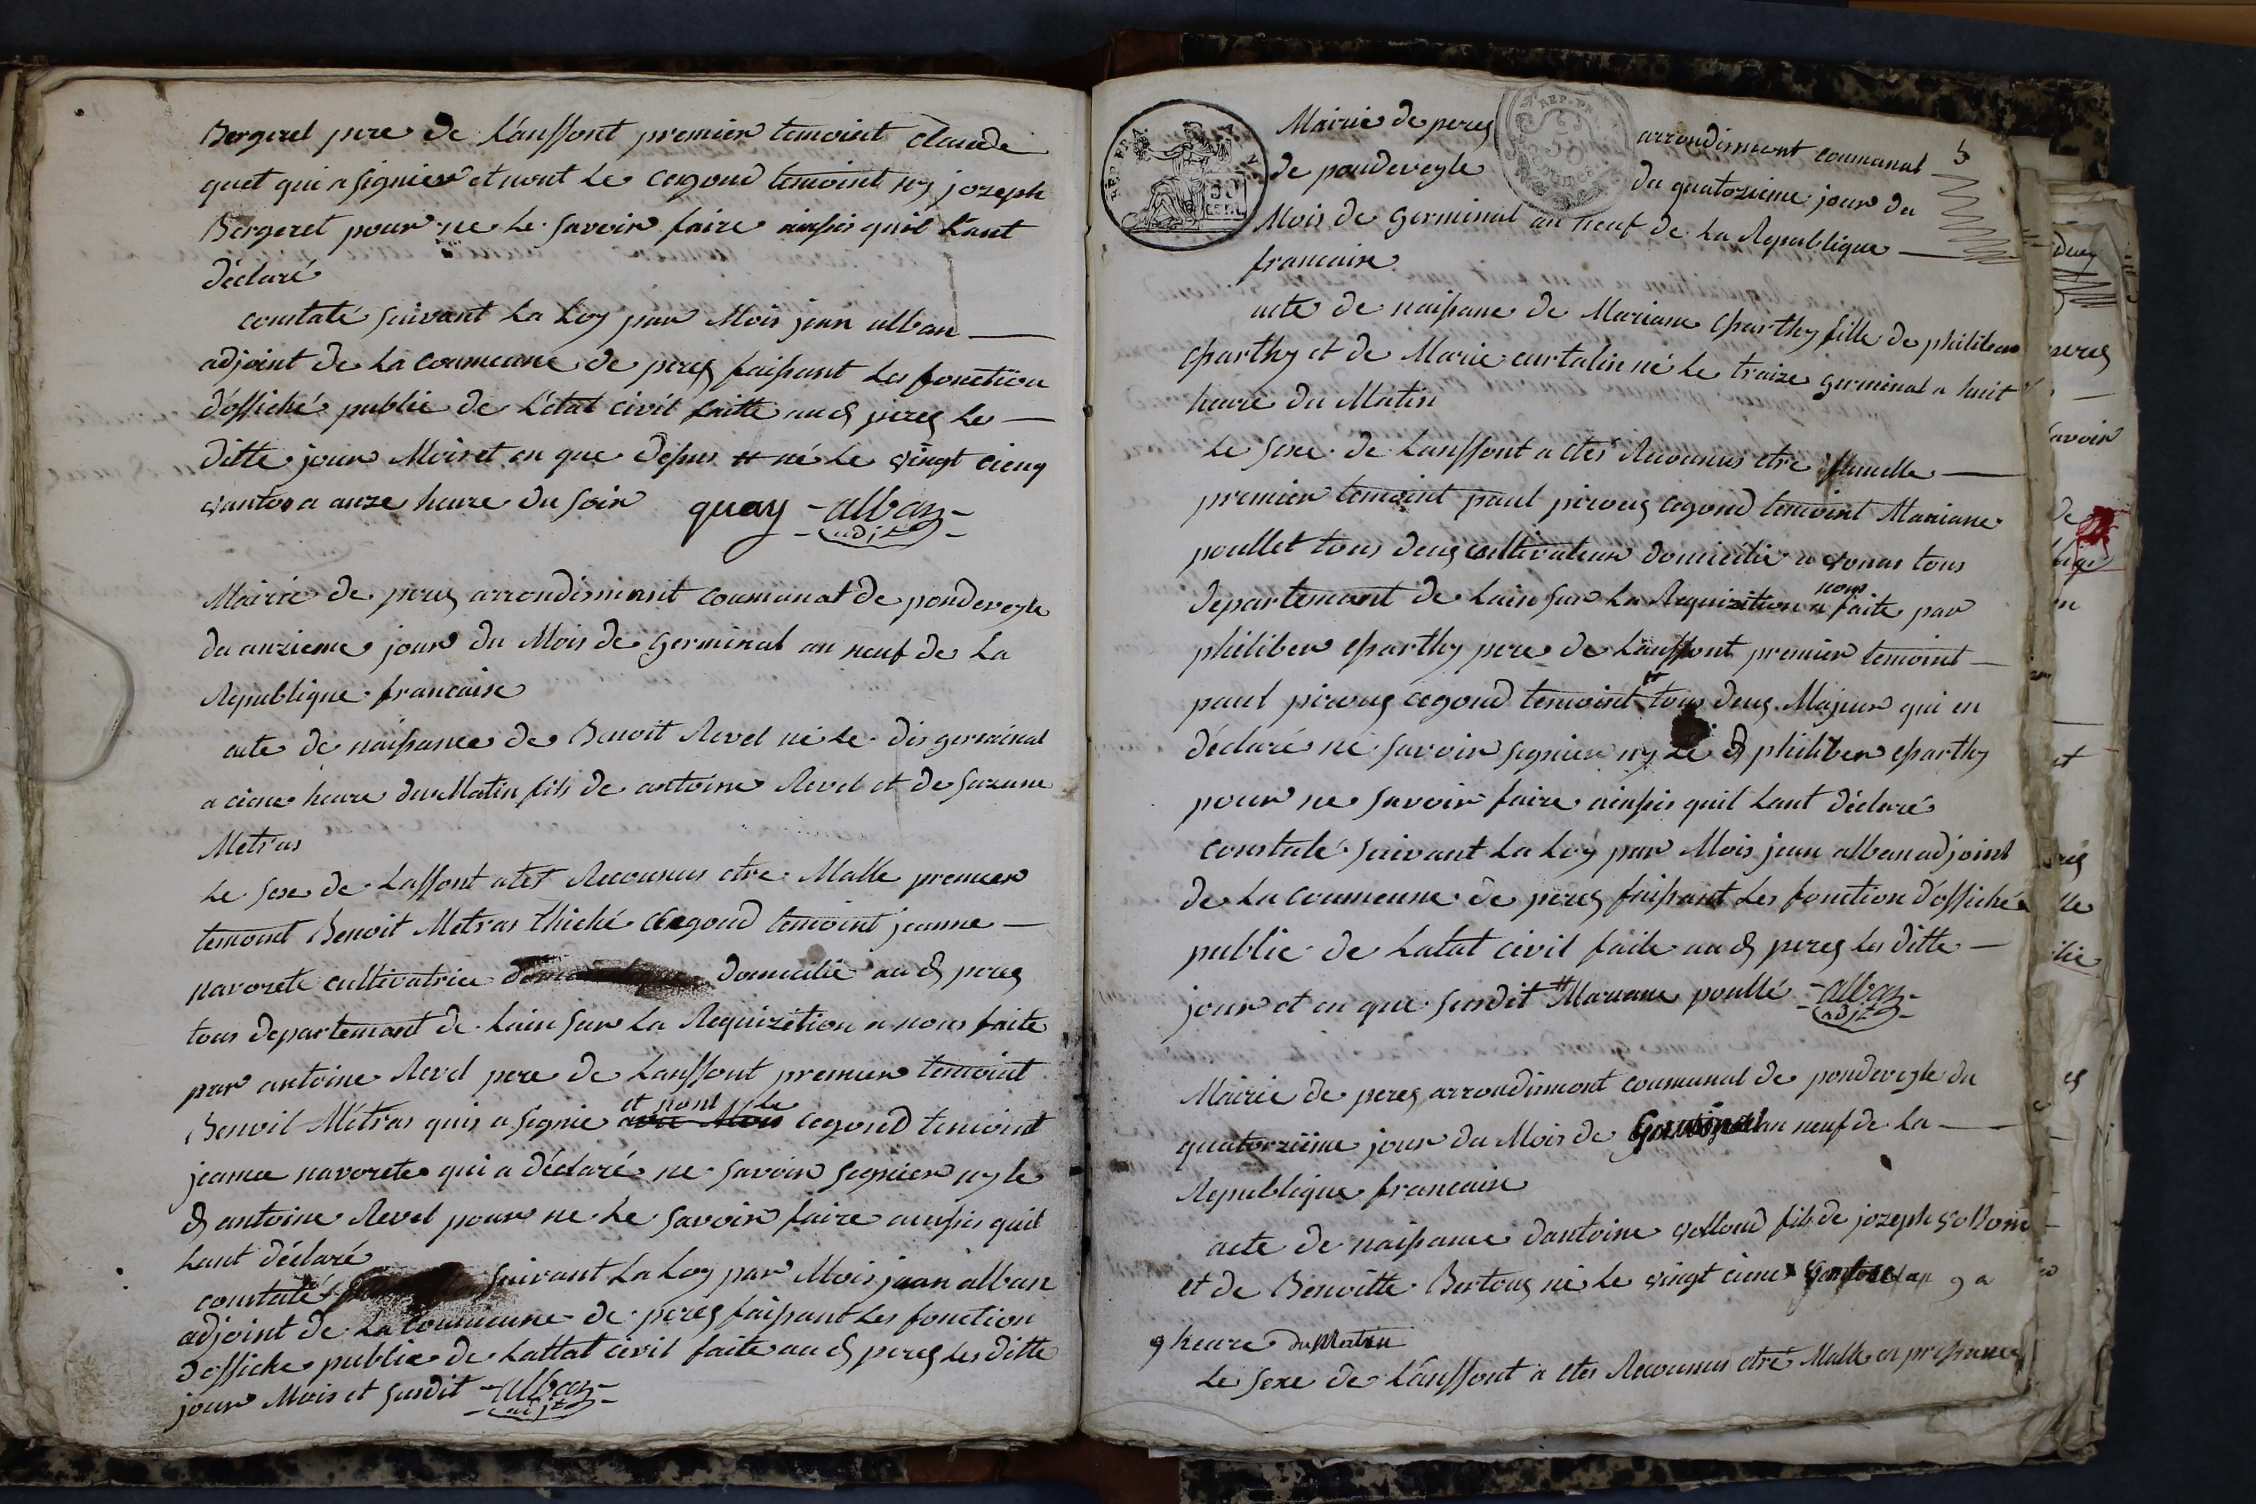 Bergerel pere de L'anffont premier temoint claude
quet qui a signier et nont Le cegond temoint ny jozeph
Bergeret pour ne Le savoir faire ainssis quil L'ant
déclaré
constaté suivant La Loy par Mois jean alban
adjoint de La coumeune de perex faissant Les fonction
d'offiché public de L'état civil faitte au d perex Le
ditte jour Mois et en que dessus # né Le vingt cienq
vantos a anze heure du soir quay - alban -
adjt
Mairie de perex arrondisment coumunal de pondeveyle
du anzieme jour du Mois de germinal an neuf de La
Republique francaise
acte de naissance de Benoit Revel né Le dis germinal
a cienc heure du Matin fils de antoine Revel et de Suzanne
Metras
Le sexe de Laffont atés Reconnus etre Malle premier
temoint Benoit Metras thiché cegond temoint jeanne
navorete cultivatrice domicilié au d perex
tous departemant de Lain sur La Requizition a nous faite
par antoine Revel pere de Lanffont premier temoint
Benoit Métras quis a segnié et nont Le cegond temoint
jeanne navorete qui a déclaré ne savoir segnier ny le
d antoine Revel pour ne Le savoir faire ainssis quil
Lant déclaré
constaté suivant La Loy par Mois jean alban
adjoint de La coumeune de perex faissant Les fonction
d'offiche public de Lattat civil faite au d perex Les ditte
jour Mois et susdit - alban -
adjt
REP. FRA. 50 CENT.
REP. FR.
Mairie de perex arrondisment coumunal 5
de pondeveyle du quatozieme jour du
Mois de germinal an neuf de La Republique
francaise
acte de naissane de Mariane Eparthy fille de philiber
Eparthy et de Marie curtalin né Le traize germinal a huit
heure du Matin
Le sexe de Lanffont a etés Reconnus etre famelle
premier temoint paul piroux cegond temoint Mariane
poullet tous deux cultivateur domicilié a vonas tous
departemant de Lain sur La Requizition a nous faite par
philiber Eparthy pere de Lanffont premier temoint
paul piroux cegond temoint # tous deux Majeur qui en
déclaré ne savoir segnier ny Le d philiber Eparthy
pour ne savoir faire ainssis quil Lant déclaré
constaté suivant La Loy par Mois jean alban adjoint
de La coumeune de perex faissant Les fonction d'offiché
public de Latat civil faite au d perex Les ditte
jour et en que susdit # Mariane poullé - alban -
adjt
Mairie de perex arrondisment coumunal de pondeveyle du
quatorzième jour du Mois de Germinal an neuf de La
Republique francaise
acte de naissance dantoine volland fils de jozeph
et de Benoitte Bertoux né Le vingt cienc Ventose an 9 a
9 heure du Matin
Le sexe de L'anffont a etés Reconnus etré Malle en pressance